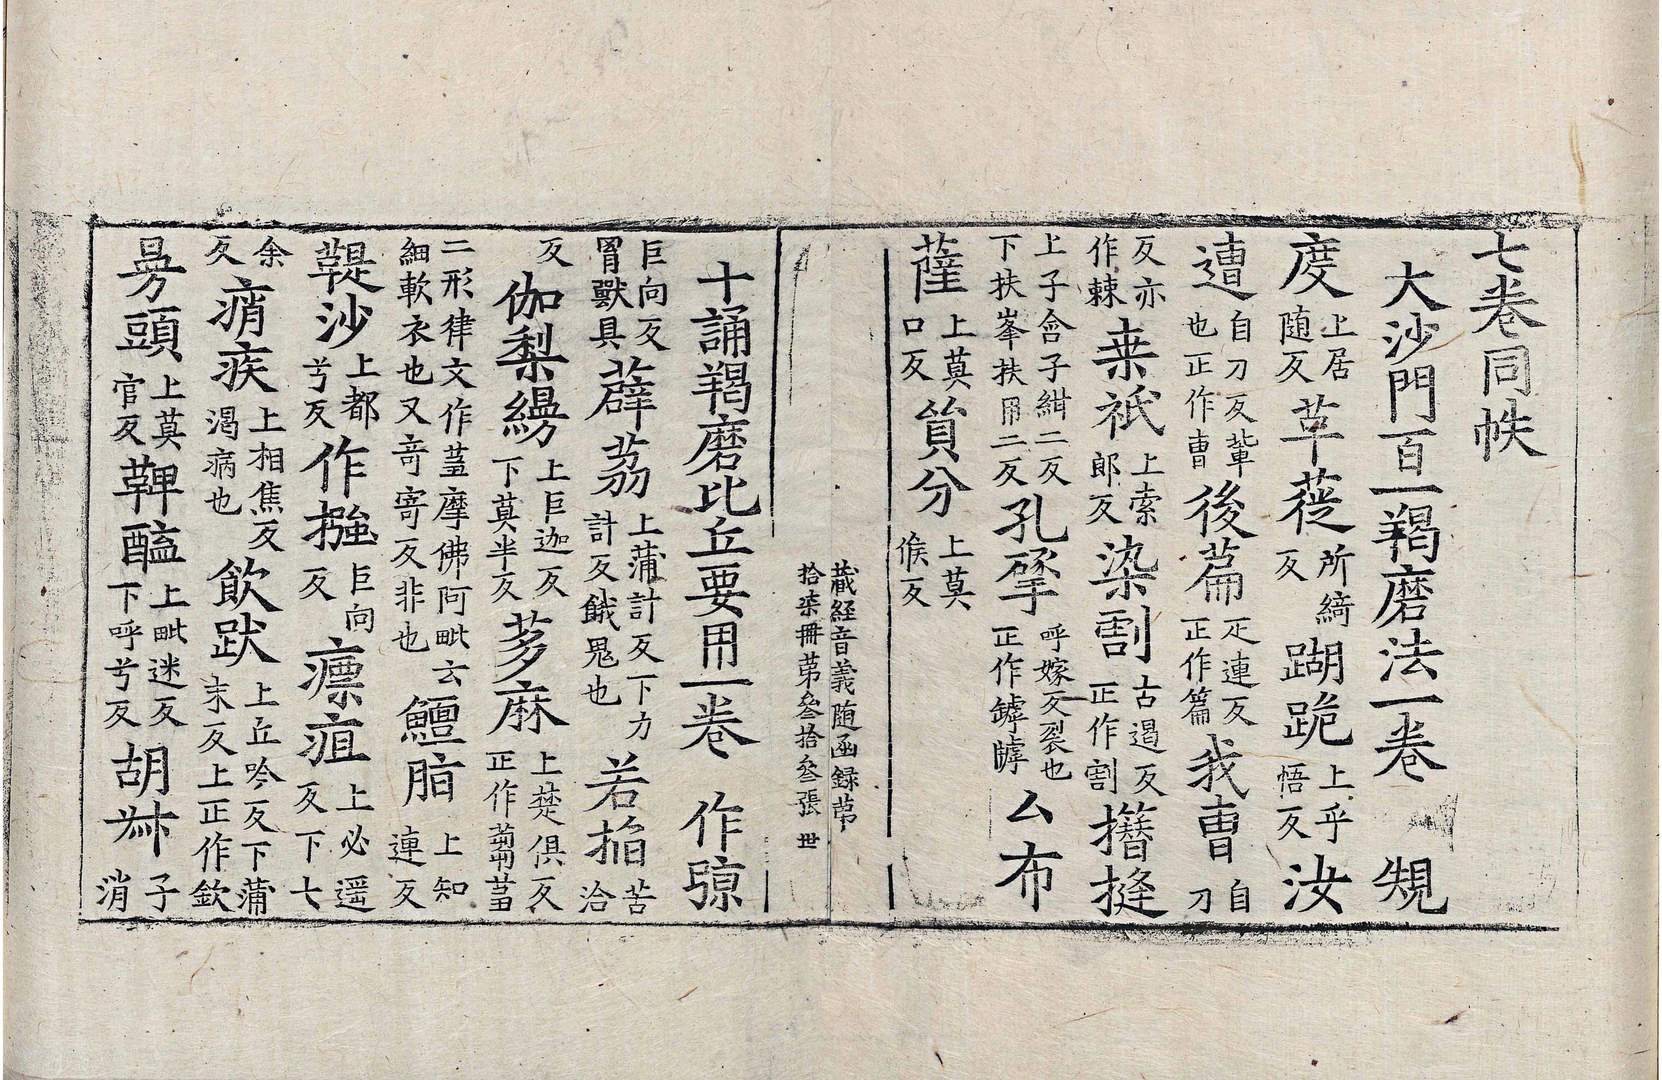 七卷同帙
大沙門百一羯磨法一卷 䂓
度上居随反草蓰所綺反蹋跪上乎悟反汝
遭自刀反軰也正作曹後萹疋連反正作篇我曺自刀
反亦作棘枽祇上索郎反染割古遏反正作割撍搓
上子會子紺二反下扶峯扶用二反孔㨷呼嫁反裂也正作罅㙤厶布
薩上莫口反貿分上莫候反
藏経音義随函録苐
拾柒冊苐叄拾叄張 世
十誦羯磨比丘要用一卷 作弶
巨向反罥獸具薜荔上蒲計反下力計反餓鬼也若掐苦洽
反伽梨縵上巨迦反下莫半反芗麻上楚俱反正作蒭䓞
二形律文作䓞摩佛阿毗云細軟衣也又竒寄反非也鱣脂上知連反
鞮沙上都兮反作摾巨向反瘭疽上必遥反下七
余反痟疾上相焦反渴病也飲跋上丘吟反下蒲末反上正作欽
㝵頭上莫官反鞞醯上毗迷反下呼兮反胡𦭩子消